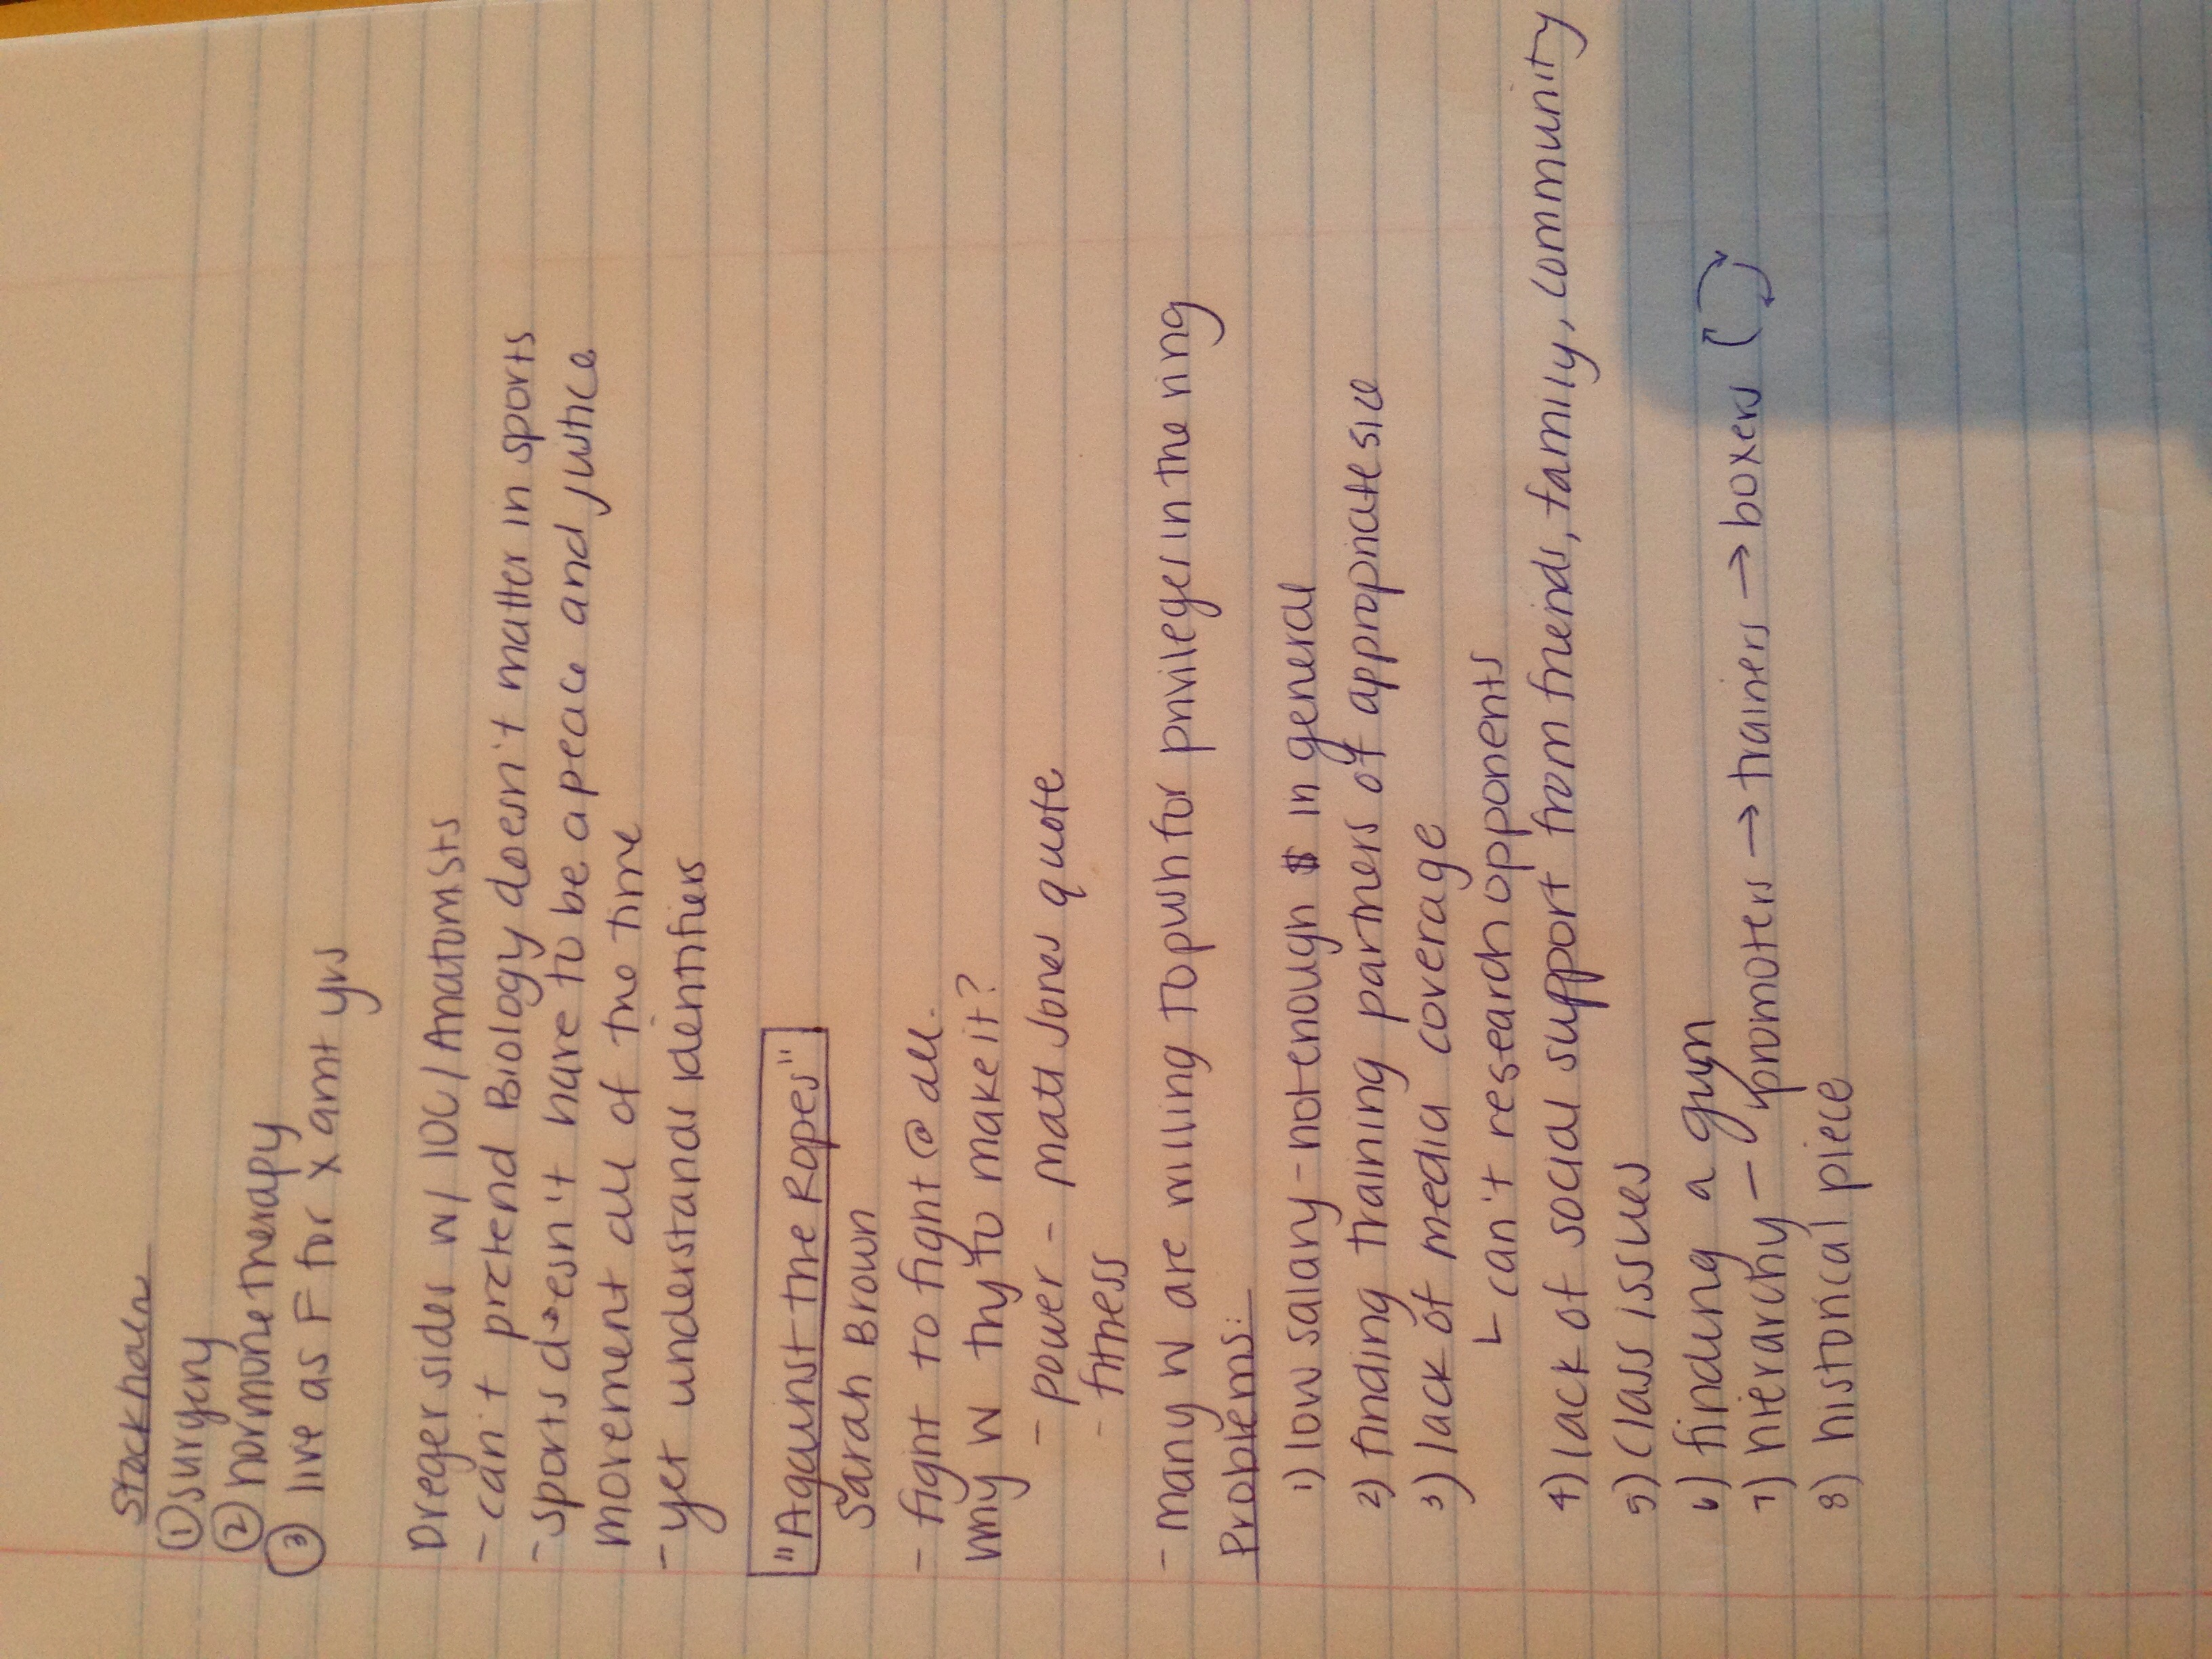 Stockholm
① surgery
② hormone therapy
③ live as F for x amt yrs
Dreger sides w/ IOC/Anatomists
- can't pretend Biology doesn't matter in sports
- sports doesn't have to be a peace and justice
movement all of the time
- yet understands identifiers
"Against the Ropes"
Sarah Brown
- fight to fight @ all.
why W try to make it?
- power - matt Jones quote
- fitness
- many W are willing to push for privileges in the ring
Problems:
1) low salary - not enough $ in general
2) finding training partners of appropriate size
3) lack of media coverage
└ can't research opponents
4) lack of social support from friends, family, community
5) class issues
6) finding a gym
7) hierarchy - promoters → trainers → boxers
8) historical piece